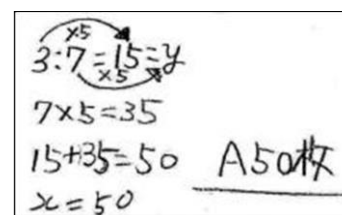 ×5
3:7=15=y
×5
7×5=35
15+35=50 A50枚
x=50